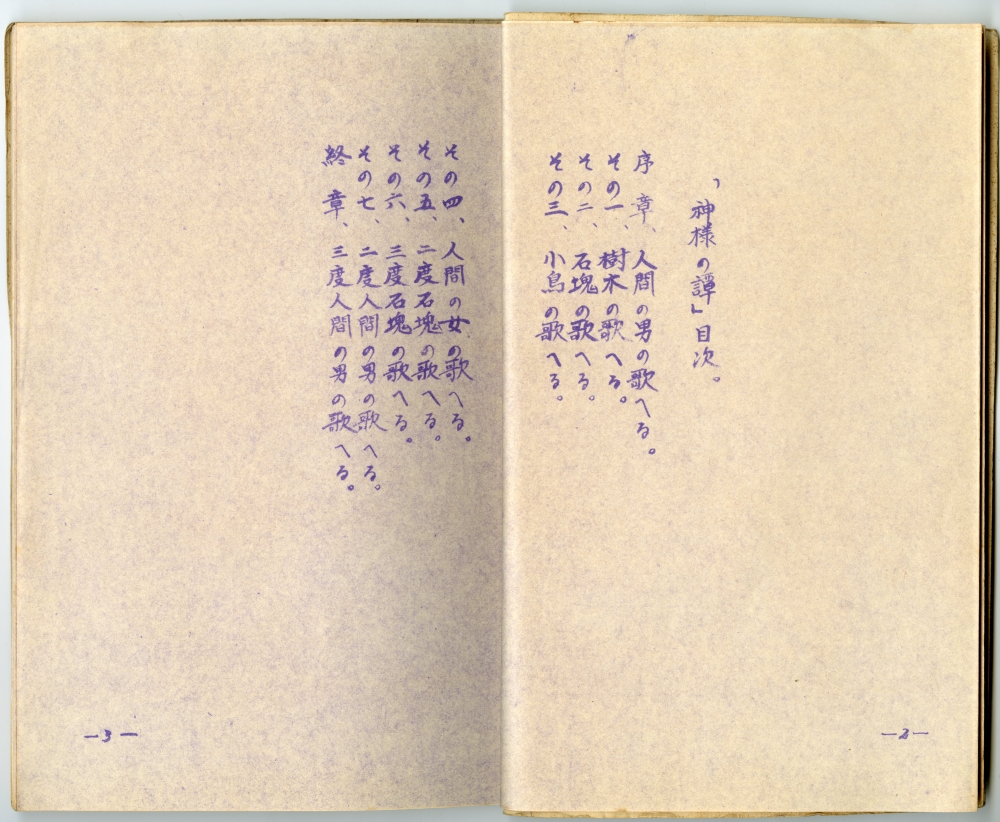 「神様の譚」目次。
序章、人間の男の歌へる。
その一、樹木の歌へる。
その二、石塊の歌へる。
その三、小鳥の歌へる。
—2—
その四、人間の女の歌へる。
その五、二度石塊の歌へる。
その六、三度石塊の歌へる。
その七、二度人間の男の歌へる。
終章、三度人間の男の歌へる。
—3—